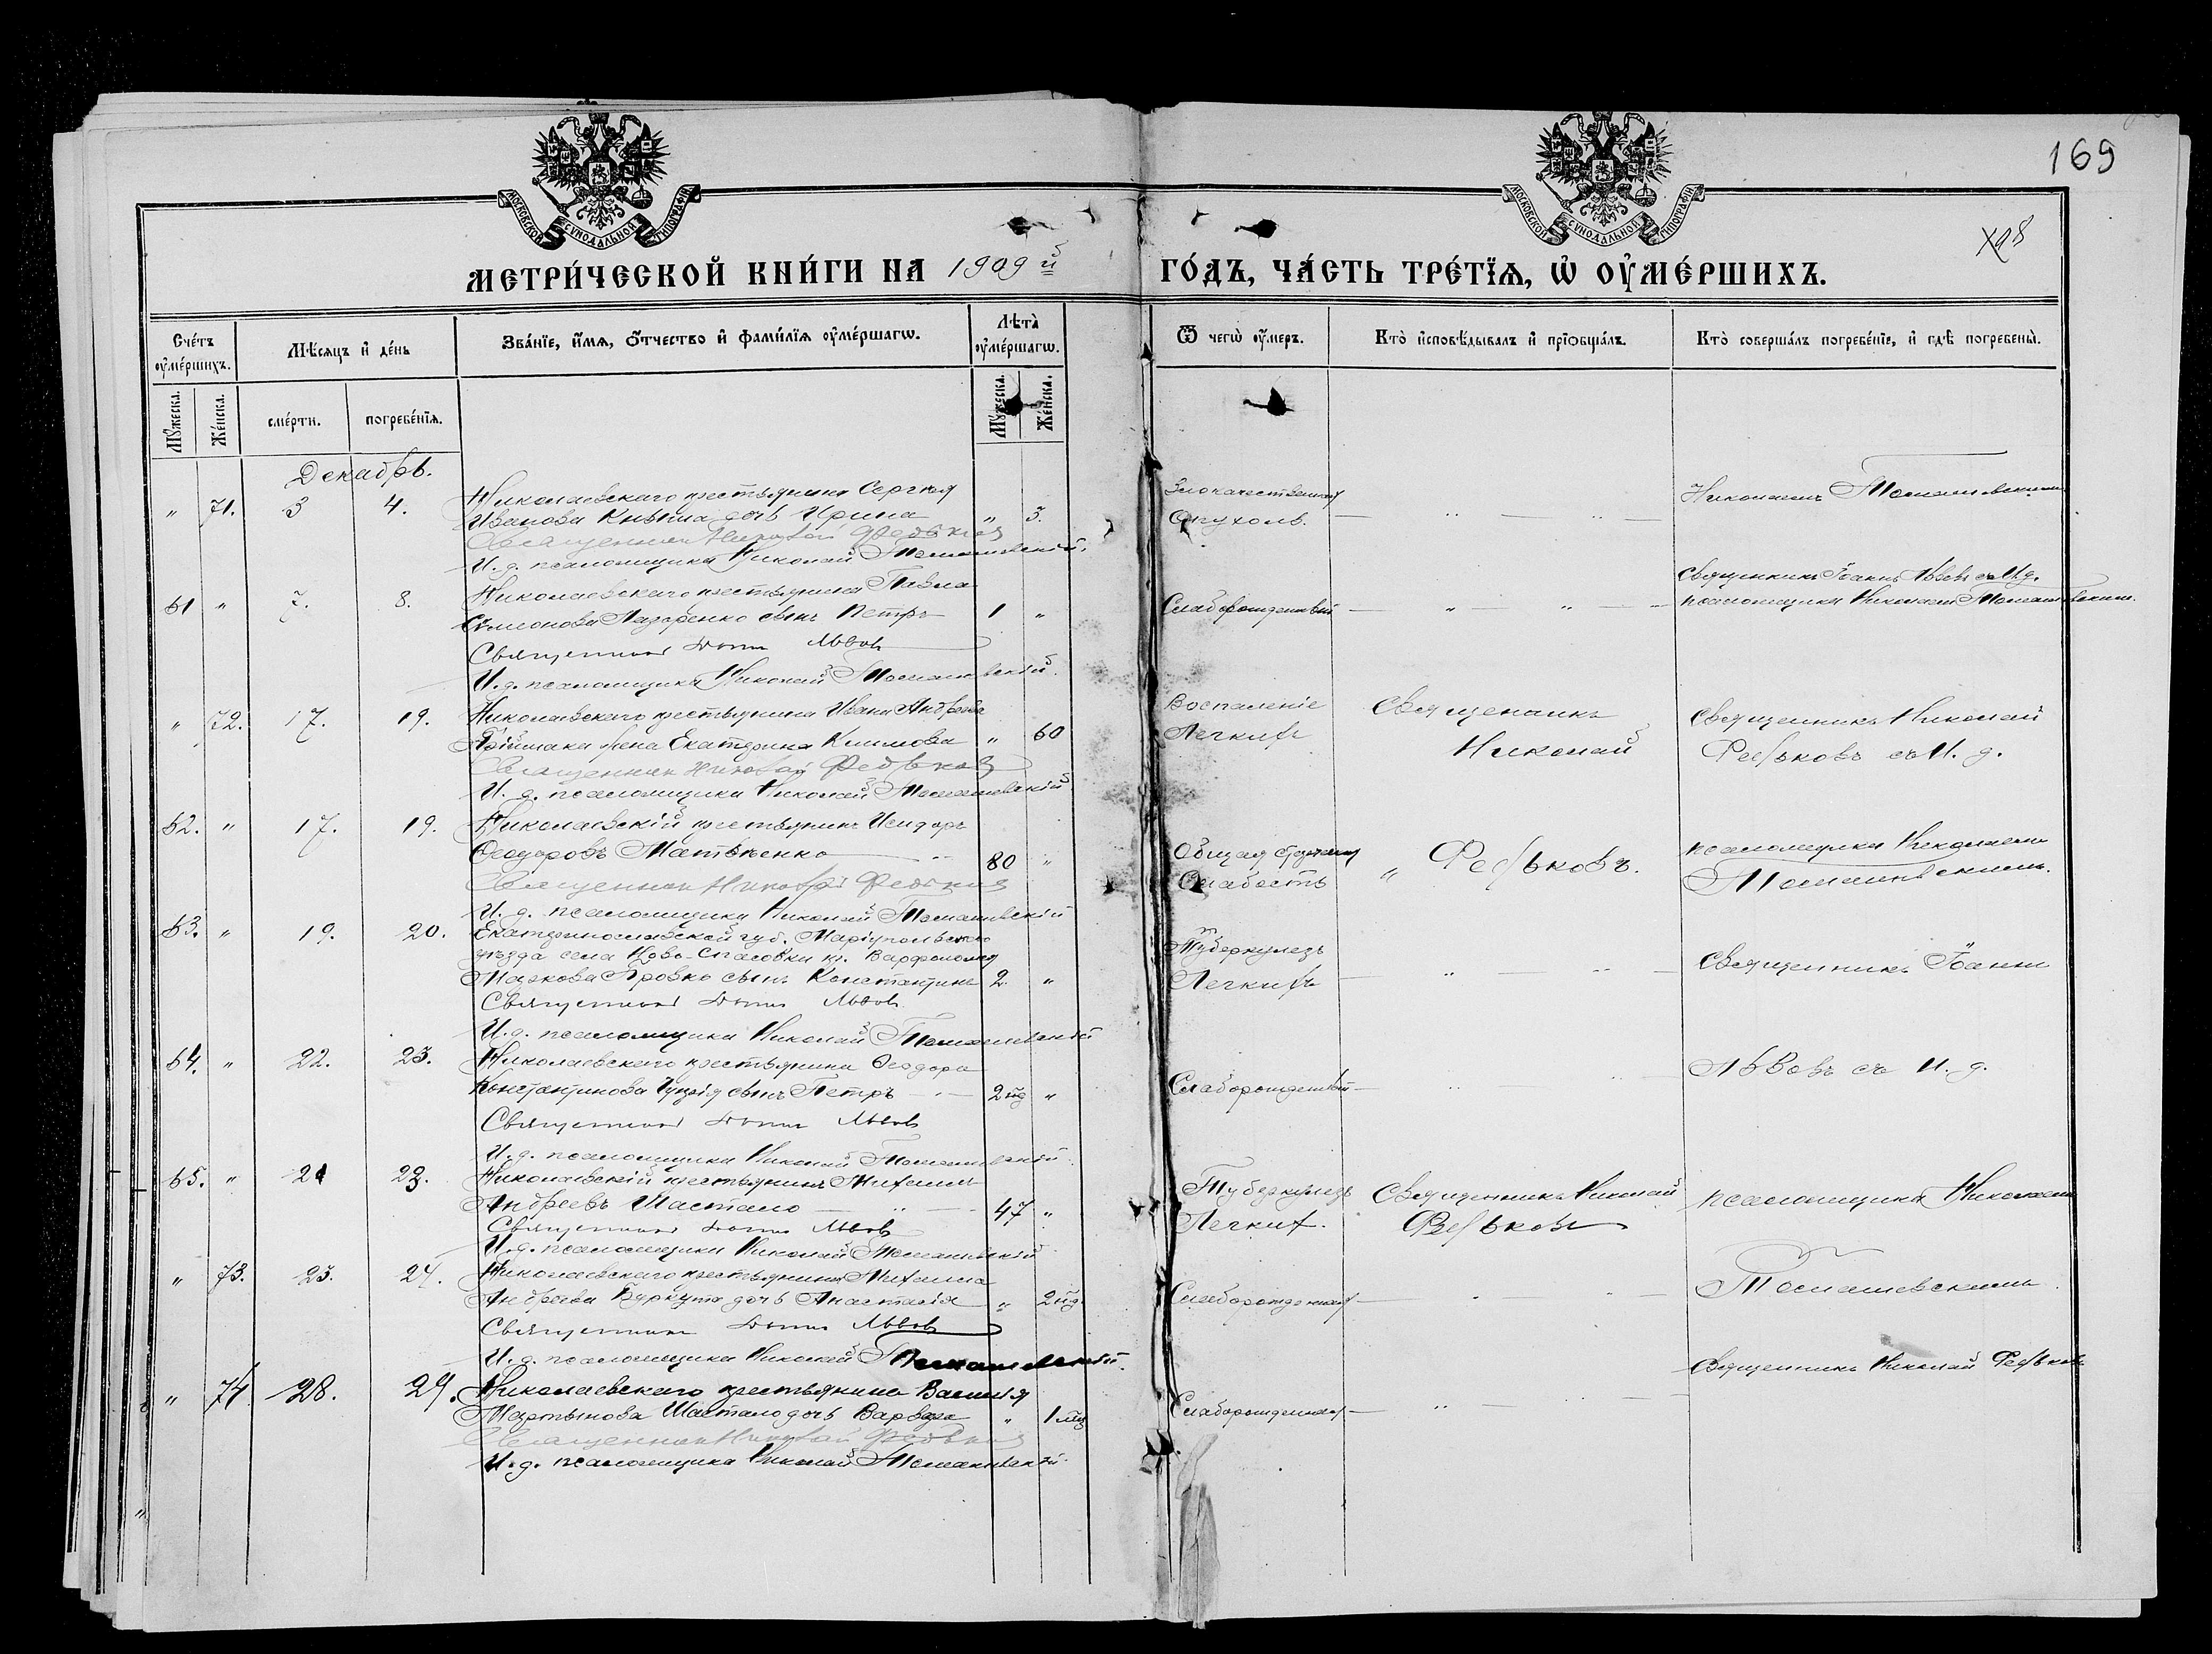 169
ХА8
МОСКОВСКОЙ СѴНОДАЛЬНОЙ ТИПОГРАФІИ
МОСКОВСКОЙ СѴНОДАЛЬНОЙ ТИПОГРАФІИ
МЕТРИ́ЧЕСКОЙ КНИ́ГИ НА 1909й ГО́ДЪ, ЧА́СТЬ ТРЕ́ТЇѦ, Ѡ҆ ОУ҆МЕ́РШИХЪ.
Сче́тъ оу҆ме́ршихъ.
Мѣ́сяцъ и҆ де́нь
Зва́нїе, и҆́мѧ, ѻ҆́тчество и҆ фами́лїѧ оу҆ме́ршагѡ.
Лѣ̀та оу҆ме́ршагѡ.
Ѿ чегѡ̀ оу҆́меръ.
Кто̀ и҆сповѣ́дывалъ и҆ прїѻбща́лъ.
Кто̀ соверша́лъ погребе́нїе, и҆ гдѣ̀ погребены̀.
Мꙋ́жеска.
Же́нска.
сме́рти.
погребе́нїѧ.
Мꙋ́жеска.
Же́нска.
Декабрь.
" 71. 3 4. Николаевскаго крестьянина Сергѣя
Иванова Книша дочь Ирина " 3.
Священник Николай Федьков
И. д. псаломщика Николай Томашевскій.
Злокачественная
Опухоль.
Николаемъ Томашевскимъ
61 " 7. 8. Николаевскаго крестьянина Павла
Сѵмеонова Лазоренко сынъ Петръ 1 "
Священник Іоанн Львов
И. д. псаломщика Николай Томашевскій.
Слаборожденный
Священникъ Іоаннъ Львовъ съ И. д.
псаломщика Николаемъ Томашевскимъ.
" 72. 17. 19. Николаевскаго крестьянина Ивана Андреева
жена Екатерина Климова " 60
Священник Николай Федьков
И. д. псаломщика Николай Томашевскій
Воспаленіе
Легкихъ
Священникъ
Николай
Священникъ Николай
Федьковъ съ И. д.
62. " 17. 19. Николаевскій крестьянинъ Исидоръ
Ѳеодоровъ Матвѣенко 80 "
Священник Николай Федьков
И. д. псаломщика Николай Томашевскій
Общая
Слабость
" Федьковъ.
псаломщика Николаемъ
Томашевскимъ.
63. " 19. 20. Екатеринославской губ. Маріупольскаго
уѣзда села Ново-Спасовки кр. Варфоломея
Маркова Яровко сынъ Константинъ 2. "
Священник Іоанн Львов
И. д. псаломщика Николай Томашевскій
Туберкулезъ
Легкихъ
Священникъ Іоаннъ
64. " 22. 23. Николаевскаго крестьянина Ѳеодора
Константинова сынъ Петръ 2 "
Священник Іоанн Львов
И. д. псаломщика Николай Томашевскій.
Слаборожденный
Львовъ съ И. д.
65. " 21 23. Николаевскій крестьянинъ Михаилъ
Андреевъ Шастало 47 "
Священник Іоанн Львов
И. д. псаломщика Николай Томашевскій
Туберкулезъ
Легких.
Священникъ Николай
Федьковъ
псаломщика Николаемъ
" 73. 23. 24. Николаевскаго крестьянина Михаила
Андреева Буркута дочь Анастасія " 2
Священник Іоанн Львов
И. д. псаломщика Николай Томашевскій.
Слаборожденная
Томашевскимъ.
" 74 28. 29. Николаевскаго крестьянина Василія
Мартынова Шастало дочь Варвара " 1
Священник Николай Федьков
И. д. псаломщика Николай Томашевскій.
Слаборожденная
Священникъ Николай Федьковъ